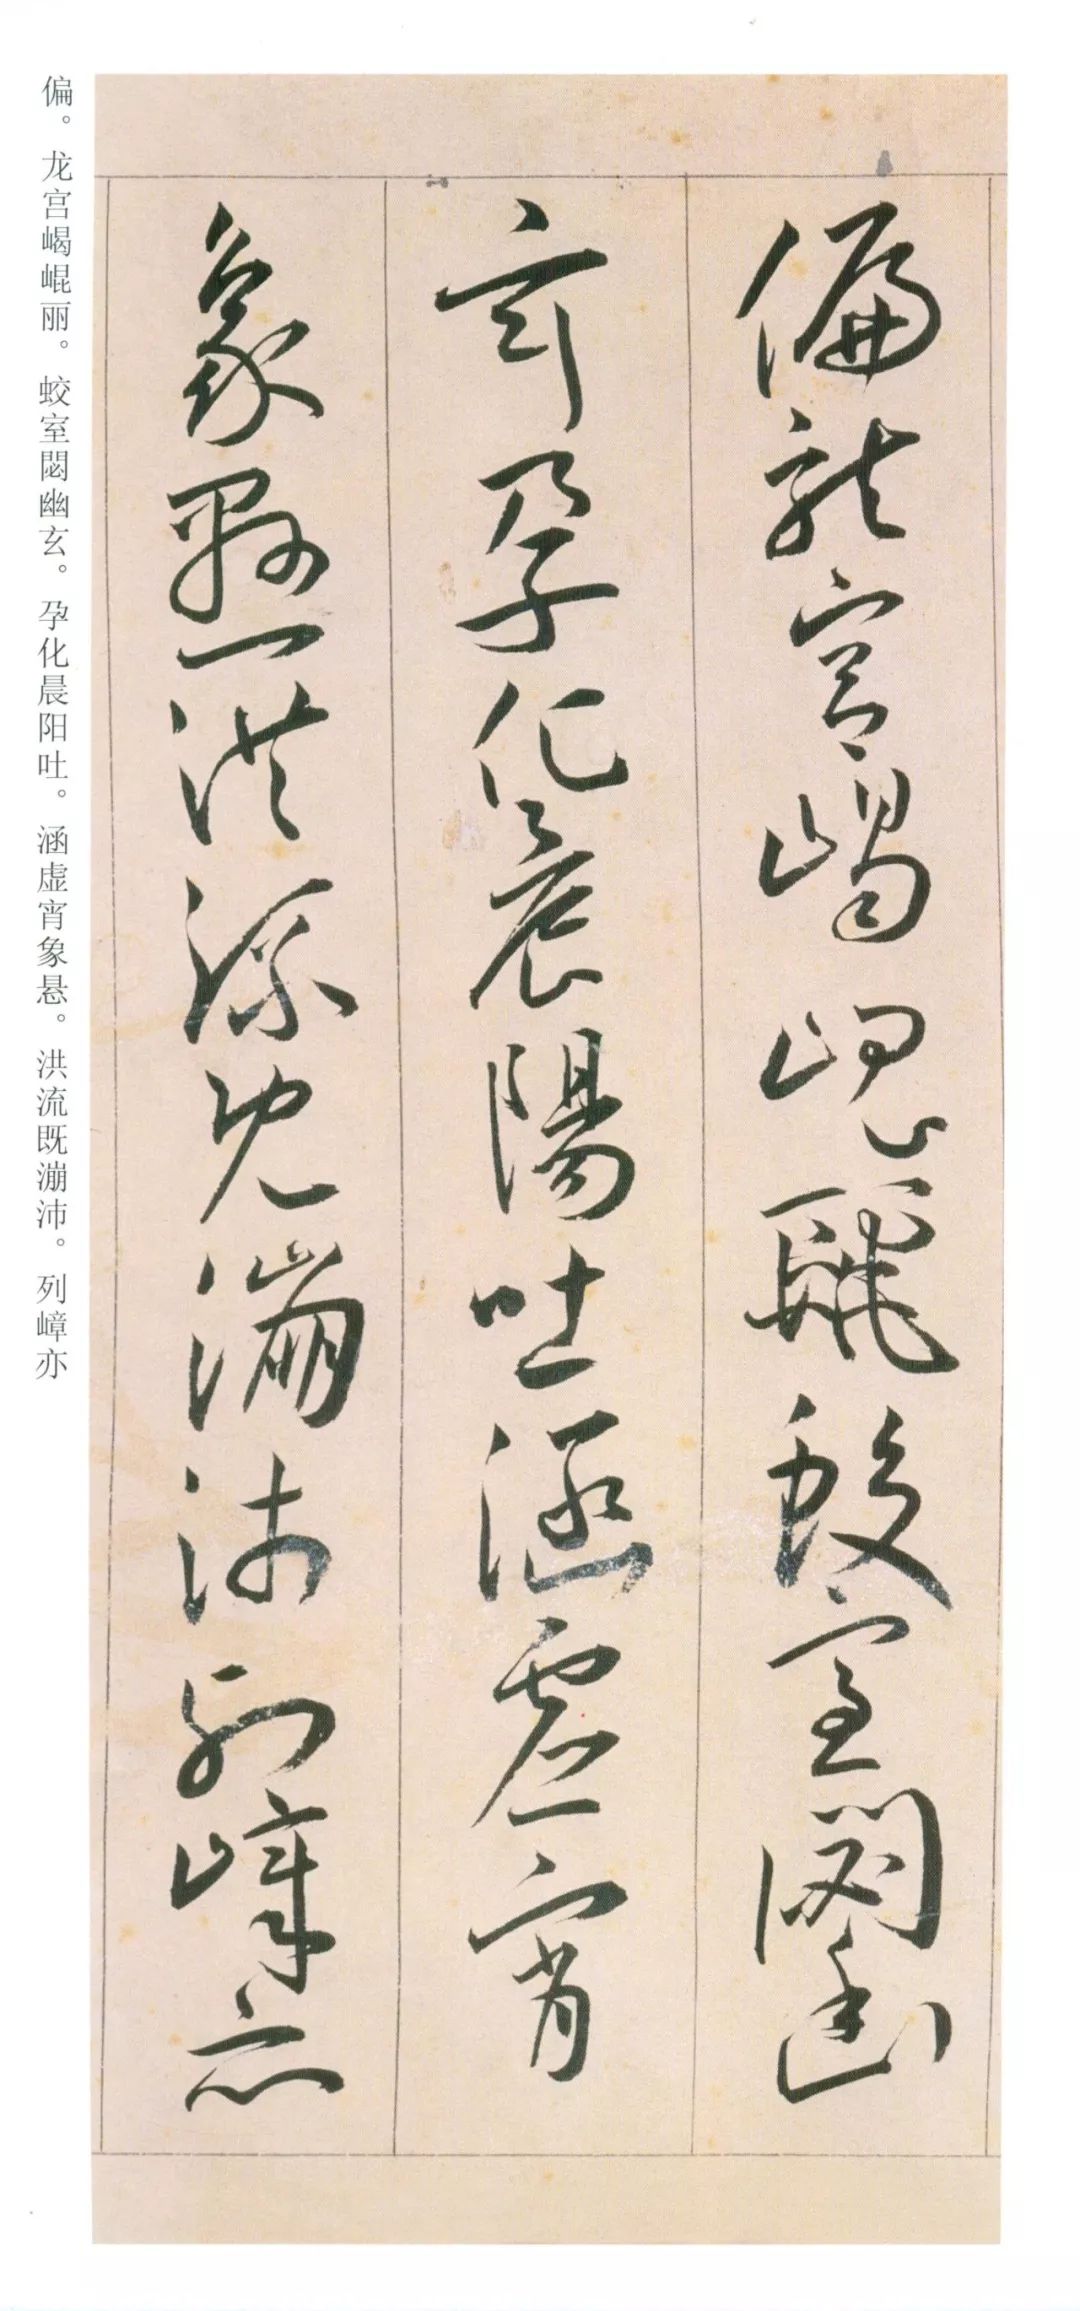 偏龍宫嵑崐麗蛟室閟幽
玄孕化晨陽吐涵虚宵
象懸洪流既漰沛列嶂亦
偏。龙宫嵑崐丽。蛟室閟幽玄。孕化晨阳吐。涵虚宵象悬。洪流既漰沛。列嶂亦